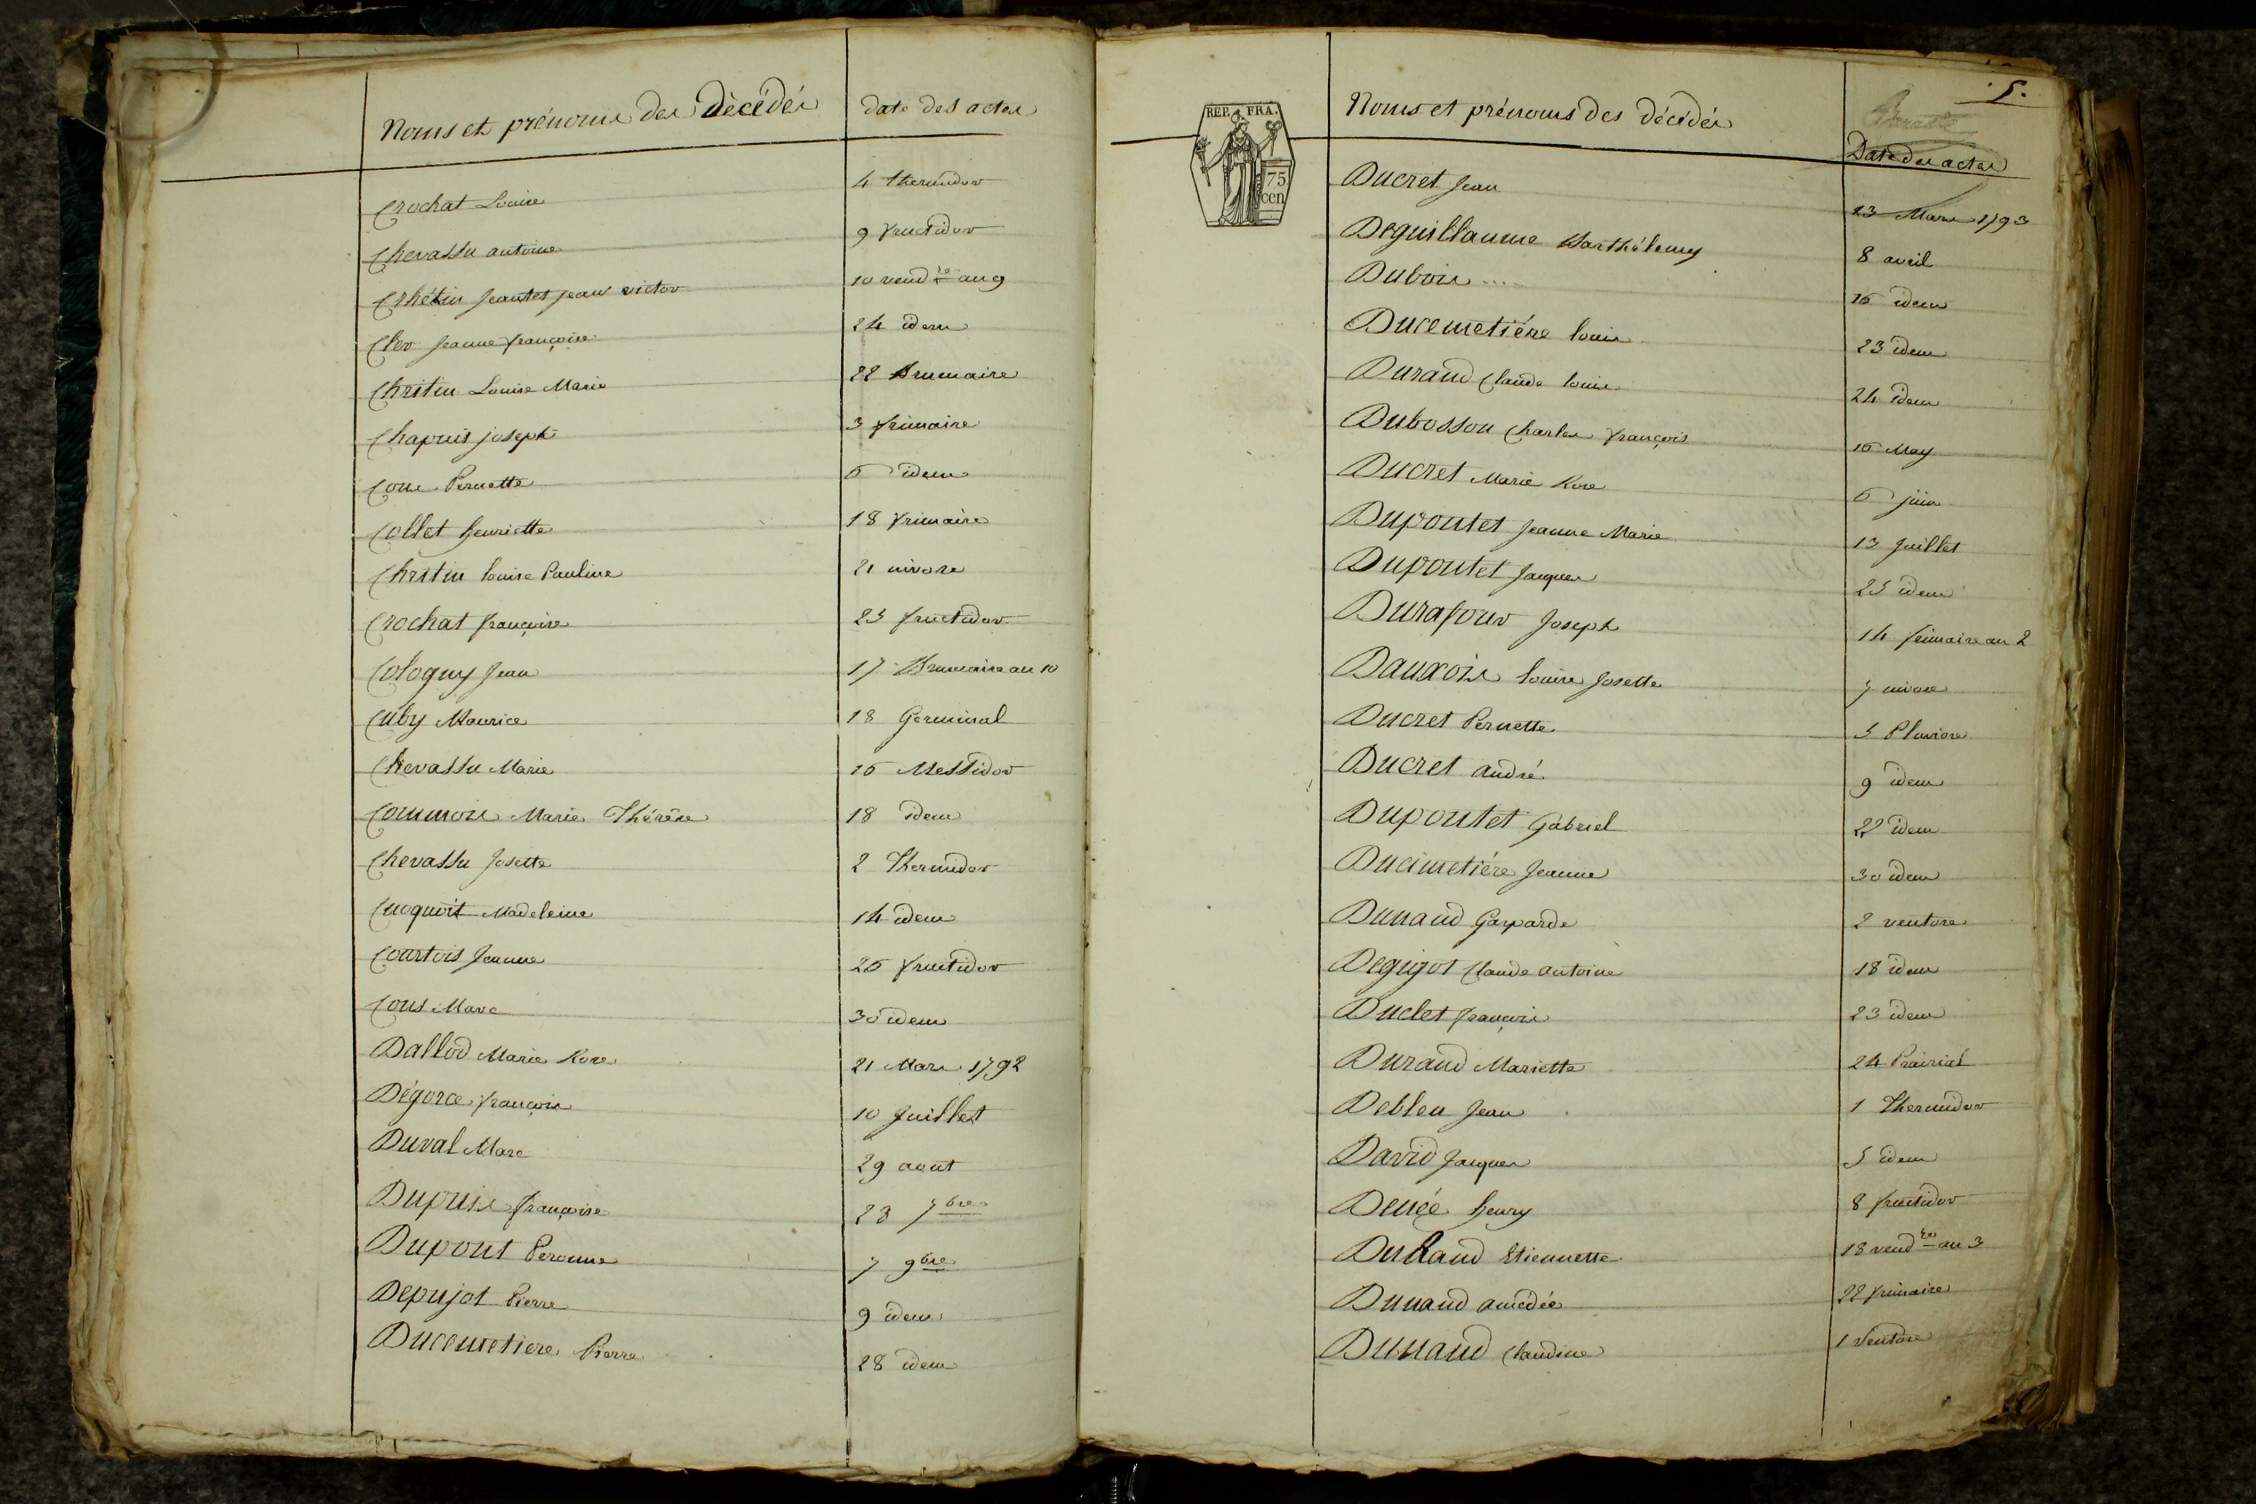 Noms et prénoms des Décédés date des actes
Crochat Louise 4 thermidor
Chevassu antoine 9 fructidor
Chétin Jeantet jean victor 10 vend.re an 9
Cler Jeanne françoise 24 idem
Christin Louise Marie 22 Brumaire
Chapuis joseph 3 frimaire
Cour Pernette 6 idem
Collet henriette 18 frimaire
Christin louise Pauline 21 nivose
Crochat françoise 23 fructidor
Cologny Jean 17 Brumaire an 10
Cuby Maurice 18 Germinal
Chevassu Marie 16 Messidor
Commois Marie Thérèse 18 idem
Chevassu Josette 2 Thermidor
Madeleine 14 idem
Courtois Jeanne 26 fructidor
Cous Marc 30 idem
Dallod Marie Rose 21 Mars 1792
Dégorce françois 10 Juillet
Duval Marc 29 aout
Dupuis françoise 23 7bre
Dupont Peronne 7 9bre
Depujot Pierre 9 idem
Ducemetiere Pierre 28 idem
5.
REP. FRA.
75
cen
Noms et prénoms des décédés Date des actes
Ducret Jean 23 Mars 1793
Deguillaume Barthélemy 8 avril
Dubois .... 16 idem
Ducemetiére louis 23 idem
Durand Claude louis 24 idem
Dubosson Charles françois 16 May
Ducret Marie Rose 6 juin
Dupontet Jeanne Marie 13 Juillet
Dupontet Jacques 25 idem
Durafour Joseph 14 frimaire an 2
Dauxois louise Josette 7 nivose
Ducret Pernette 3 Pluviose
Ducret André 9 idem
Dupontet Gabriel 22 idem
Ducimetiére Jeanne 30 idem
Dunand Gasparde 2 ventose
Degujot Claude antoine 18 idem
Duclet françois 23 idem
Durand Mariette 24 Prairial
Debleu Jean 1 Thermidor
David Jacques 5 idem
Denée henry 8 fructidor
DuRand Etiennette 18 vend.re an 3
Dunand amédée 22 frimaire
Dunand Claudine 1 Ventose